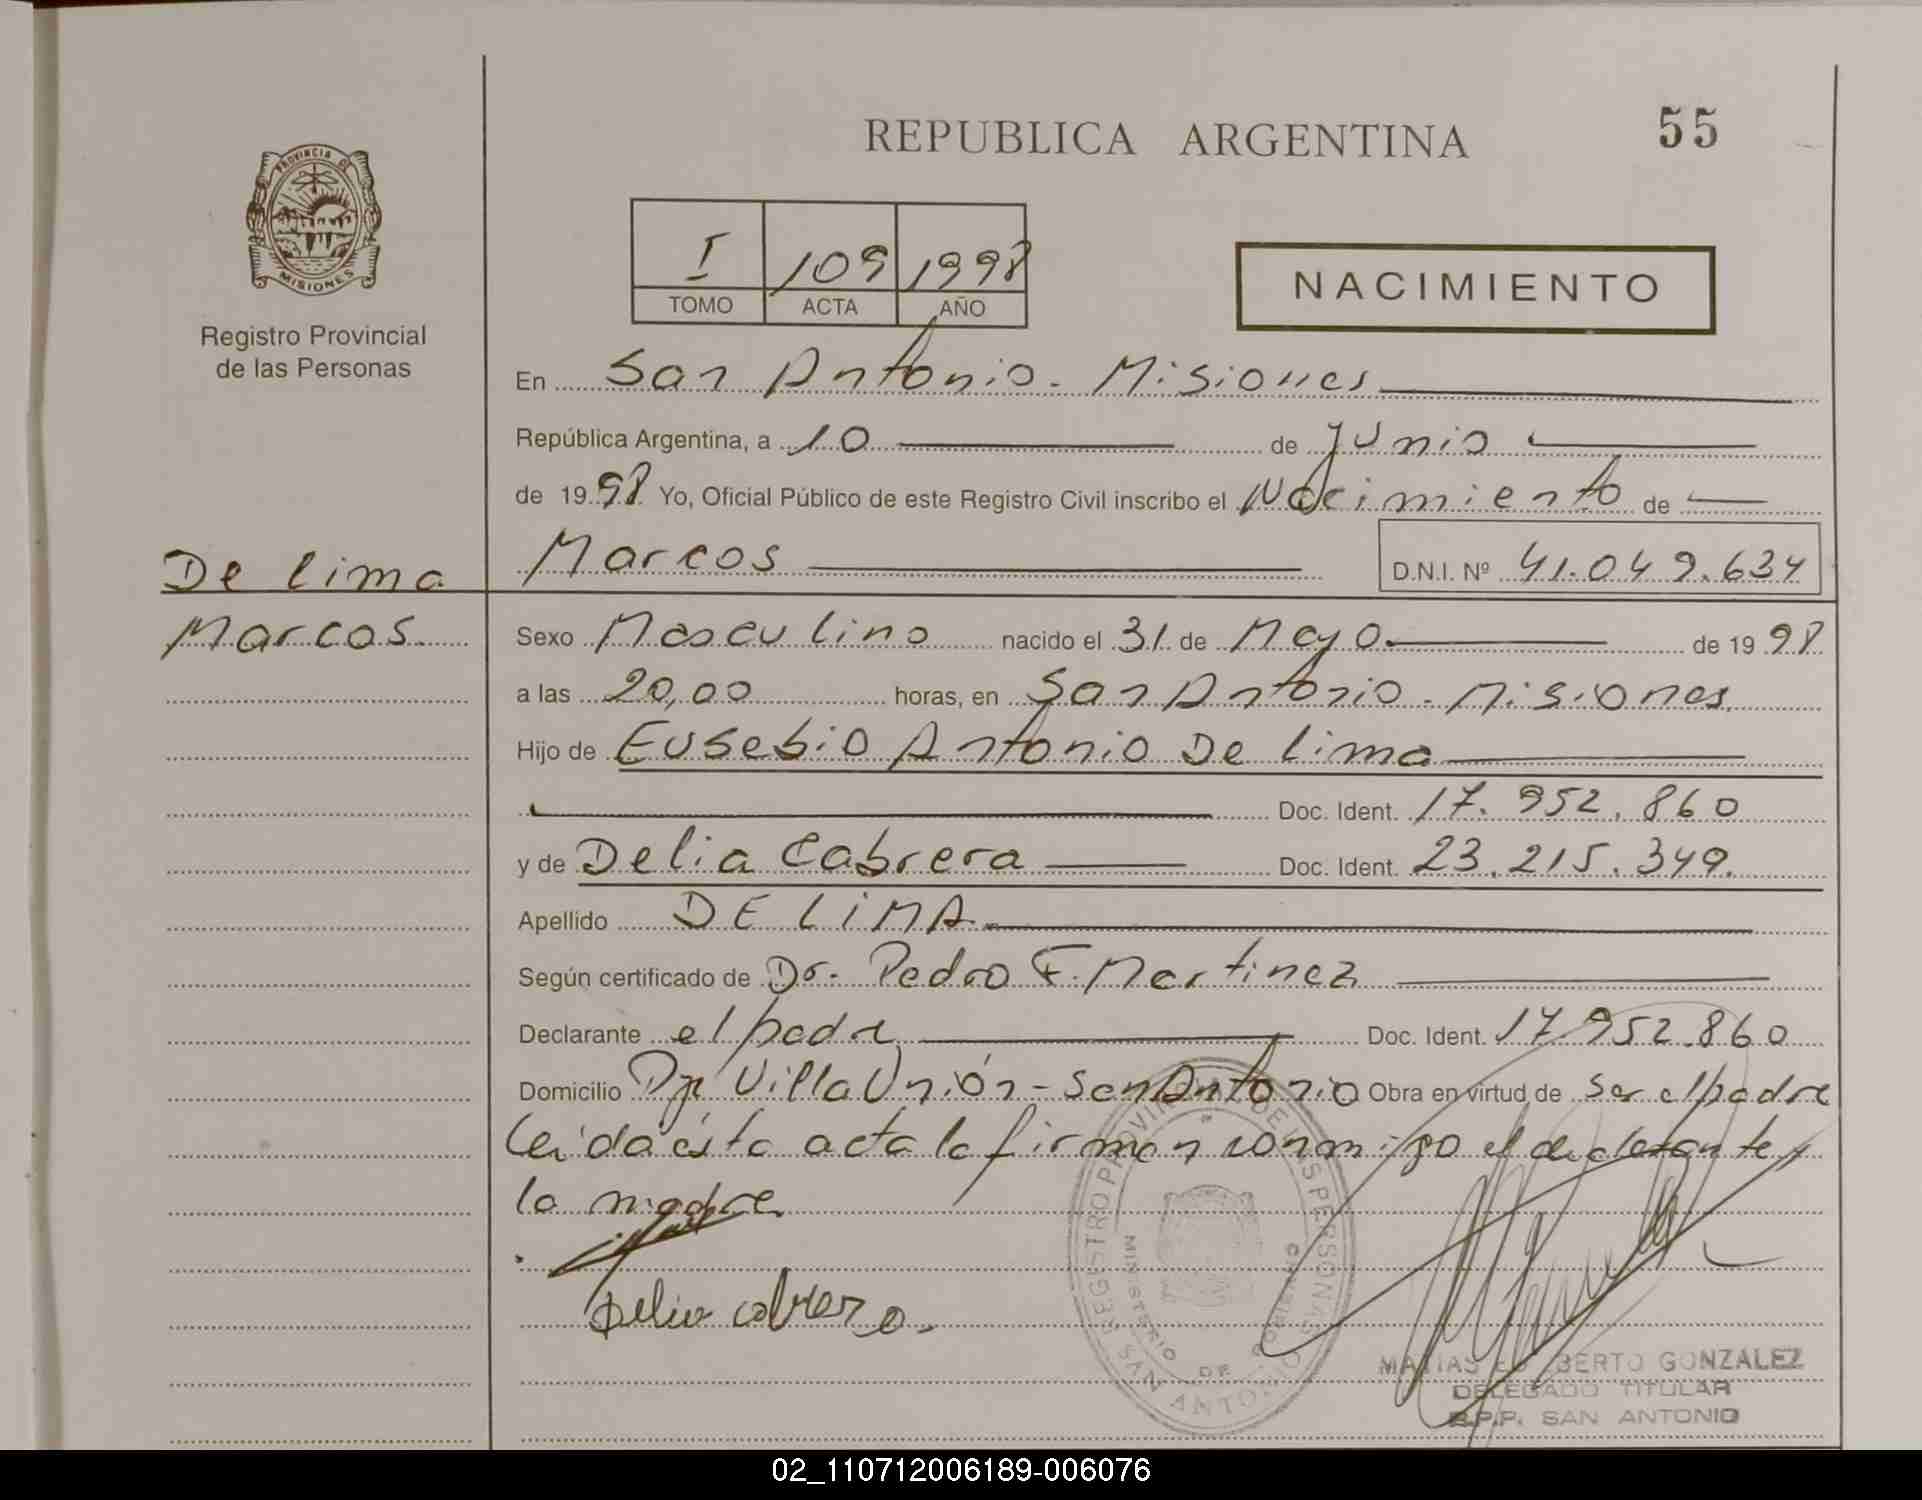 REPUBLICA ARGENTINA
55
PROVINCIA DE
MISIONES
Registro Provincial
de las Personas
I 109 1998
TOMO ACTA AÑO
NACIMIENTO
En San Antonio - Misiones
República Argentina, a 10 de Junio
de 1998 Yo, Oficial Público de este Registro Civil inscribo el Nacimiento de
De lima
Marcos
Marcos D.N.I. Nº 41.049.634
Sexo Masculino nacido el 31 de Mayo de 1998
a las 20,00 horas, en San Antonio - Misiones
Hijo de Eusebio Antonio De lima
Doc. Ident. 17.952.860
y de Delia Cabrera Doc. Ident. 23.215.349.
Apellido DE LIMA
Según certificado de Dr. Pedro F. Martinez
Declarante el padre Doc. Ident. 17.952.860
Domicilio Villa Unión - San Antonio Obra en virtud de ser el padre
Leida ésta acta la firman conmigo el declarante y
la madre
Delia cabrera.
REGISTRO PROVINCIAL DE LAS PERSONAS
MINISTERIO DE GOBIERNO
SAN ANTONIO
MATIAS GONZALEZ
DELEGADO TITULAR
R.P.P. SAN ANTONIO
02_110712006189-006076